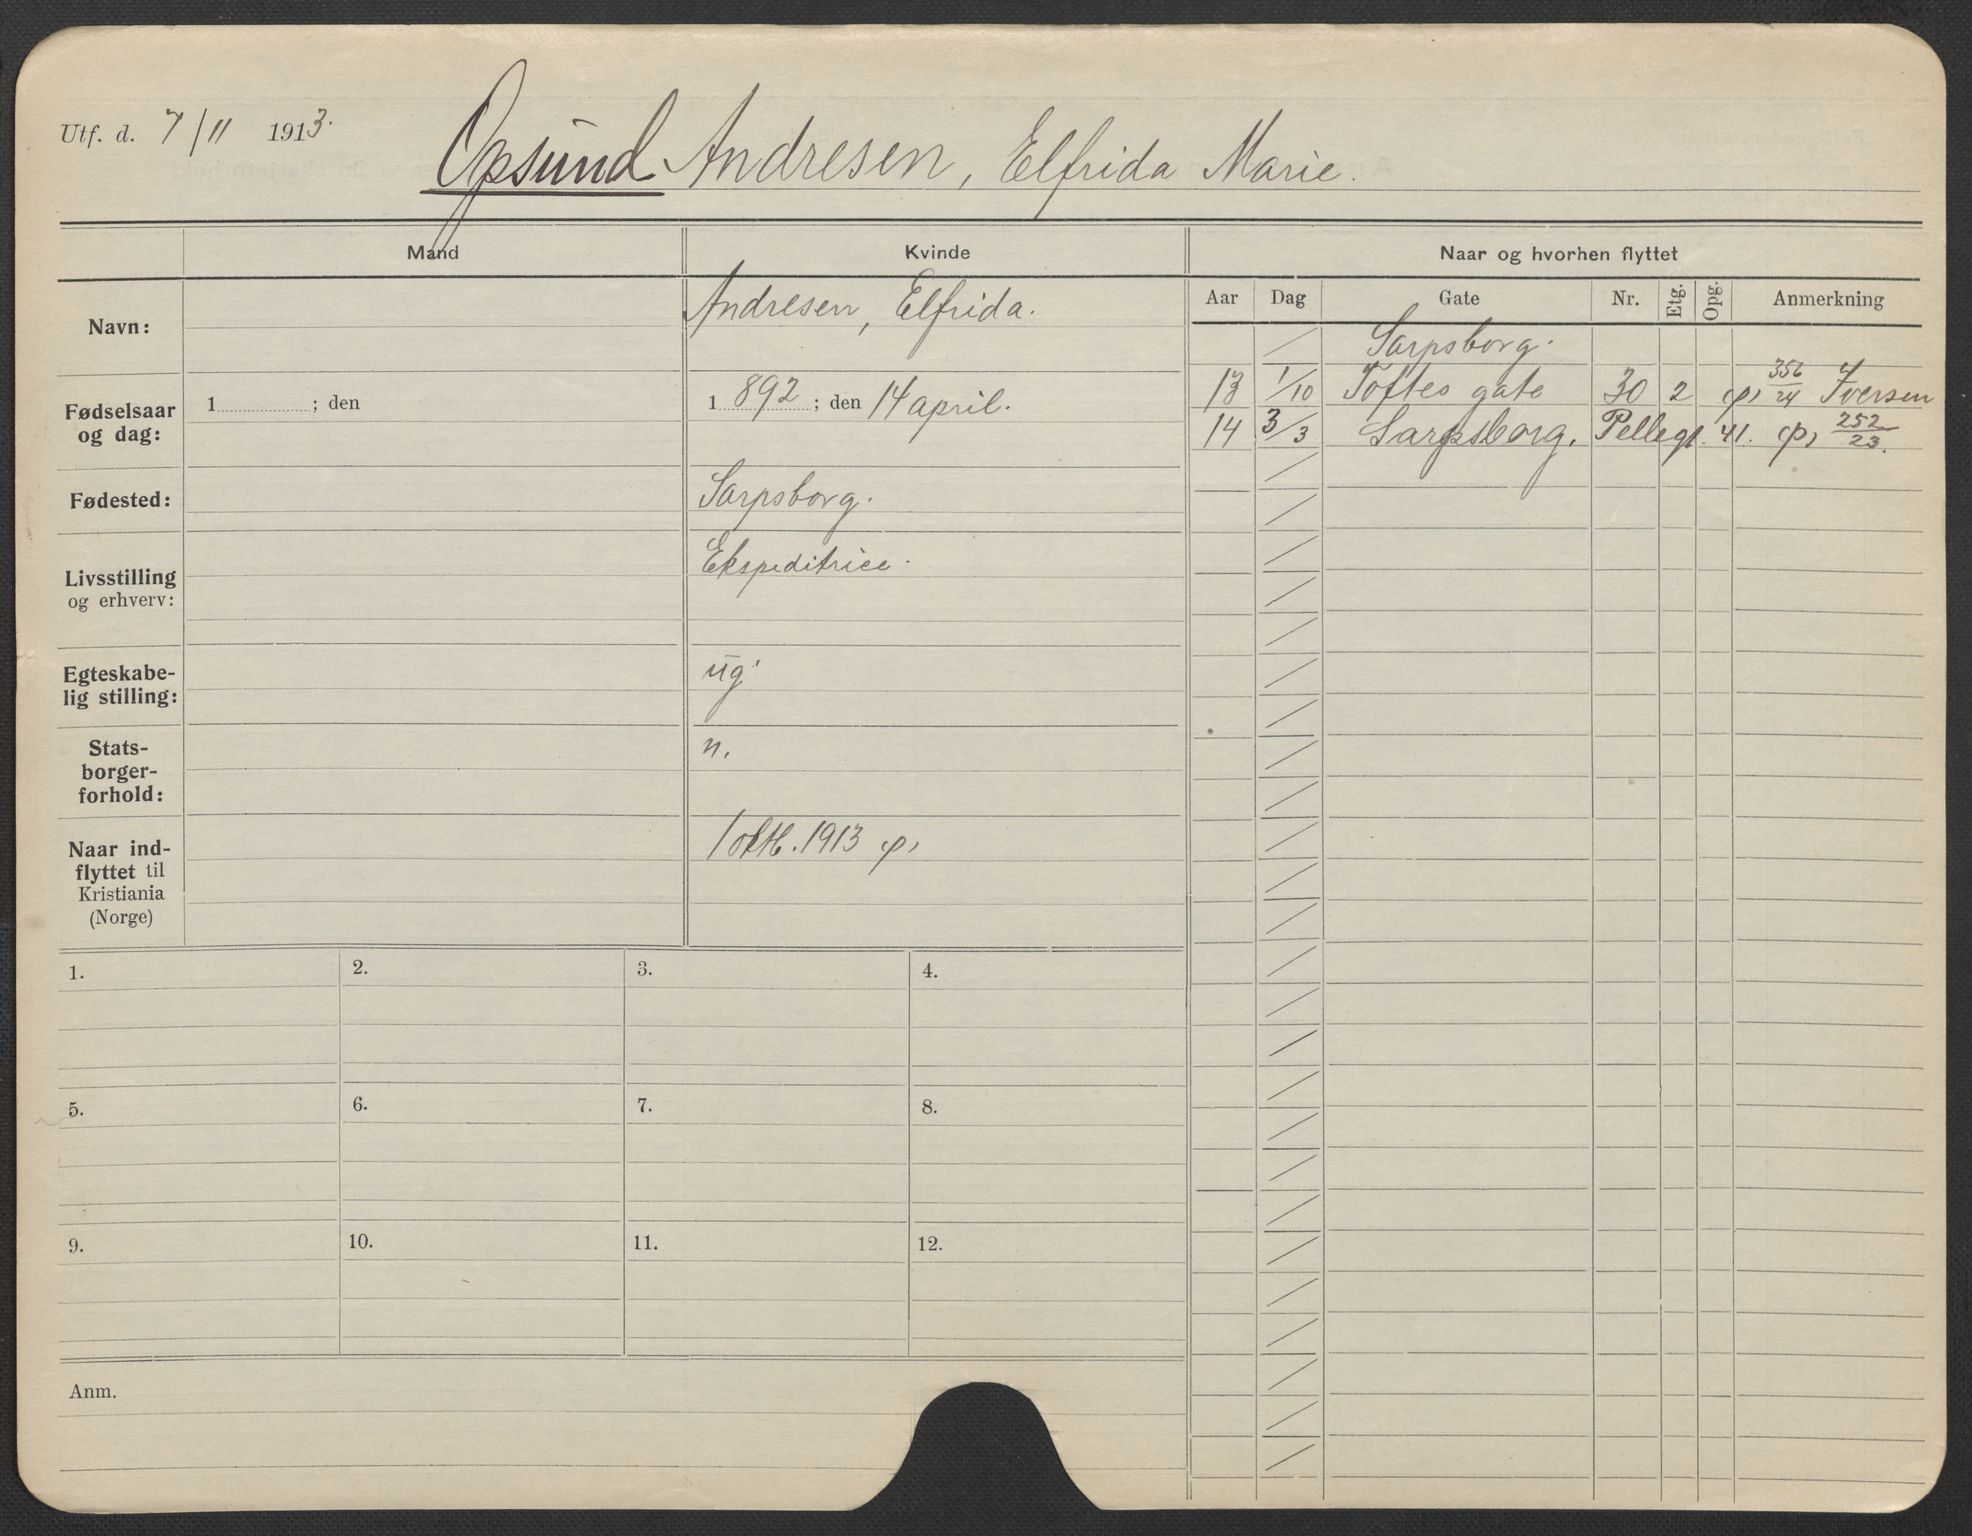 Utf. d. 7/11 1913.
Opsund Andresen, Elfrida Marie.
Mand Kvinde Naar og hvorhen flyttet
Aar Dag Gate Nr. Etg. Opg. Anmerkning
Navn: Andresen, Elfrida.
Sarpsborg.
Fødselsaar og dag: 1 ; den 1892 ; den 14 april.
13 1/10 Toftes gate 30 2 p, 356/24 Iversen
14 3/3 Sarpsborg. Pellegt. 41. p, 252/23.
Fødested: Sarpsborg.
Livsstilling
og erhverv: Ekspeditrice.
Egteskabe-
lig stilling: ug.
Stats-
borger-
forhold: n.
Naar ind-
flyttet til
Kristiania
(Norge)
1 okt. 1913 p,
1. 2. 3. 4.
5. 6. 7. 8.
9. 10. 11. 12.
Anm.